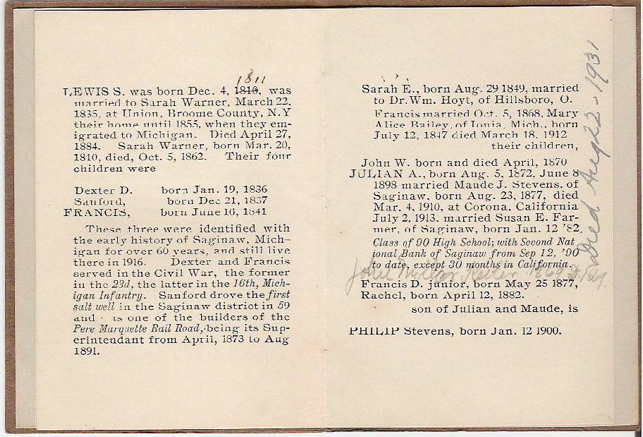 1811
LEWIS S. was born Dec. 4, 1810, was
married to Sarah Warner, March 22,
1835, at Union, Broome County, N.Y
their home until 1855, when they em-
igrated to Michigan. Died April 27,
1884. Sarah Warner, born Mar. 20,
1810, died, Oct. 5, 1862. Their four
children were
Dexter D. born Jan. 19, 1836
Sanford, born Dec 21, 1837
FRANCIS, born June 10, 1841
These three were identified with
the early history of Saginaw, Mich-
igan for over 60 years, and still live
there in 1916. Dexter and Francis
served in the Civil War, the former
in the 23d, the latter in the 16th, Mich-
igan Infantry. Sanford drove the first
salt well in the Saginaw district in 59
and is one of the builders of the
Pere Marquette Rail Road, being its Sup-
erintendant from April, 1873 to Aug
1891.
Sarah E., born Aug. 29 1849, married
to Dr. Wm. Hoyt, of Hillsboro, O.
Francis married Oct. 5, 1868, Mary
Alice Bailey, of Ionia, Mich., born
July 12, 1847 died March 18, 1912
their children,
John W. born and died April, 1870
JULIAN A., born Aug. 5, 1872, June 8
1898 married Maude J. Stevens, of
Saginaw, born Aug. 23, 1877, died
Mar. 4, 1910, at Corona, California
July 2, 1913. married Susan E. Far-
mer, of Saginaw, born Jan. 12 '82.
Class of 90 High School; with Second Nat
ional Bank of Saginaw from Sep 12, '90
to date, except 30 months in California.
Francis D. junior, born May 25 1877,
Rachel, born April 12, 1882.
son of Julian and Maude, is
PHILIP Stevens, born Jan. 12 1900.
Died Aug 22-1931